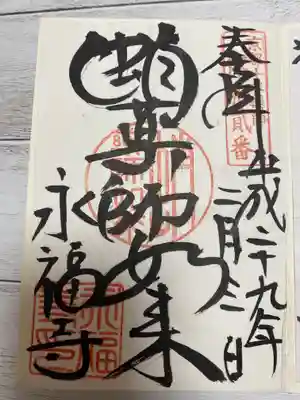 奉拝 平成二十九年二月三日
蛸薬師如来
永福寺
貳番